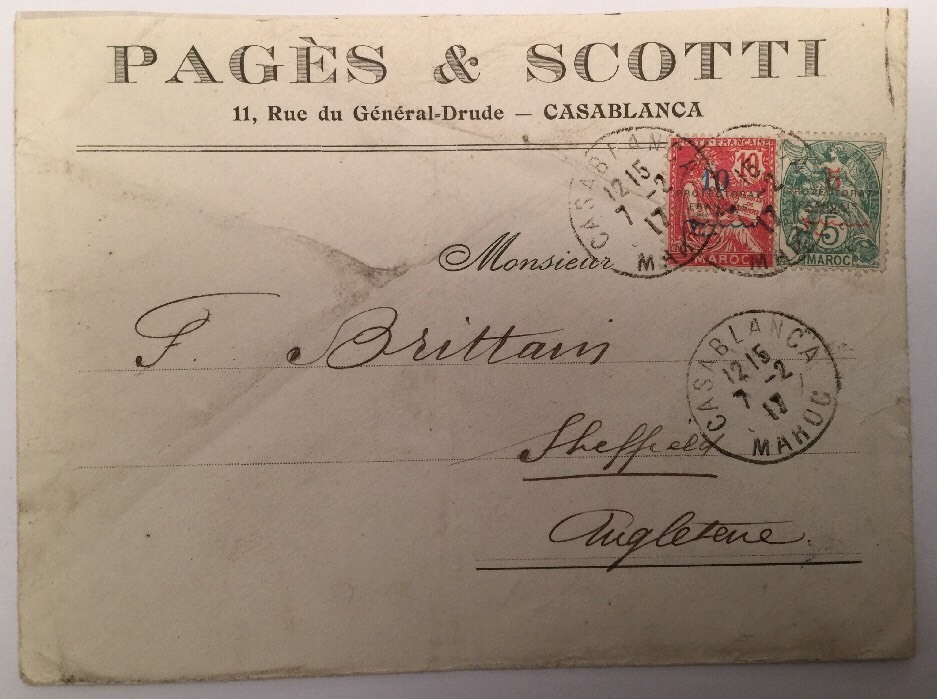 PAGÈS & SCOTTI
11, Rue du Général-Drude — CASABLANCA
CASABLANCA
12 15
7 -2
17
MAROC
10
10
PROTECTORAT
FRANÇAIS
MAROC
5
PROTECTORAT
5
MAROC
Monsieur
F. Brittain
CASABLANCA
12 15
7 -2
17
MAROC
Sheffield
Angleterre.